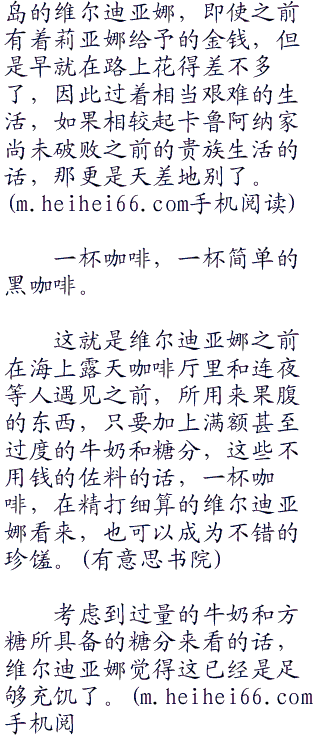 岛的维尔迪亚娜，即使之前
有着莉亚娜给予的金钱，但
是早就在路上花得差不多
了，因此过着相当艰难的生
活，如果相较起卡鲁阿纳家
尚未破败之前的贵族生活的
话，那更是天差地别了。
(m.heihei66.com手机阅读)
一杯咖啡，一杯简单的
黑咖啡。
这就是维尔迪亚娜之前
在海上露天咖啡厅里和连夜
等人遇见之前，所用来果腹
的东西，只要加上满额甚至
过度的牛奶和糖分，这些不
用钱的佐料的话，一杯咖
啡，在精打细算的维尔迪亚
娜看来，也可以成为不错的
珍馐。(有意思书院)
考虑到过量的牛奶和方
糖所具备的糖分来看的话，
维尔迪亚娜觉得这已经是足
够充饥了。(m.heihei66.com
手机阅